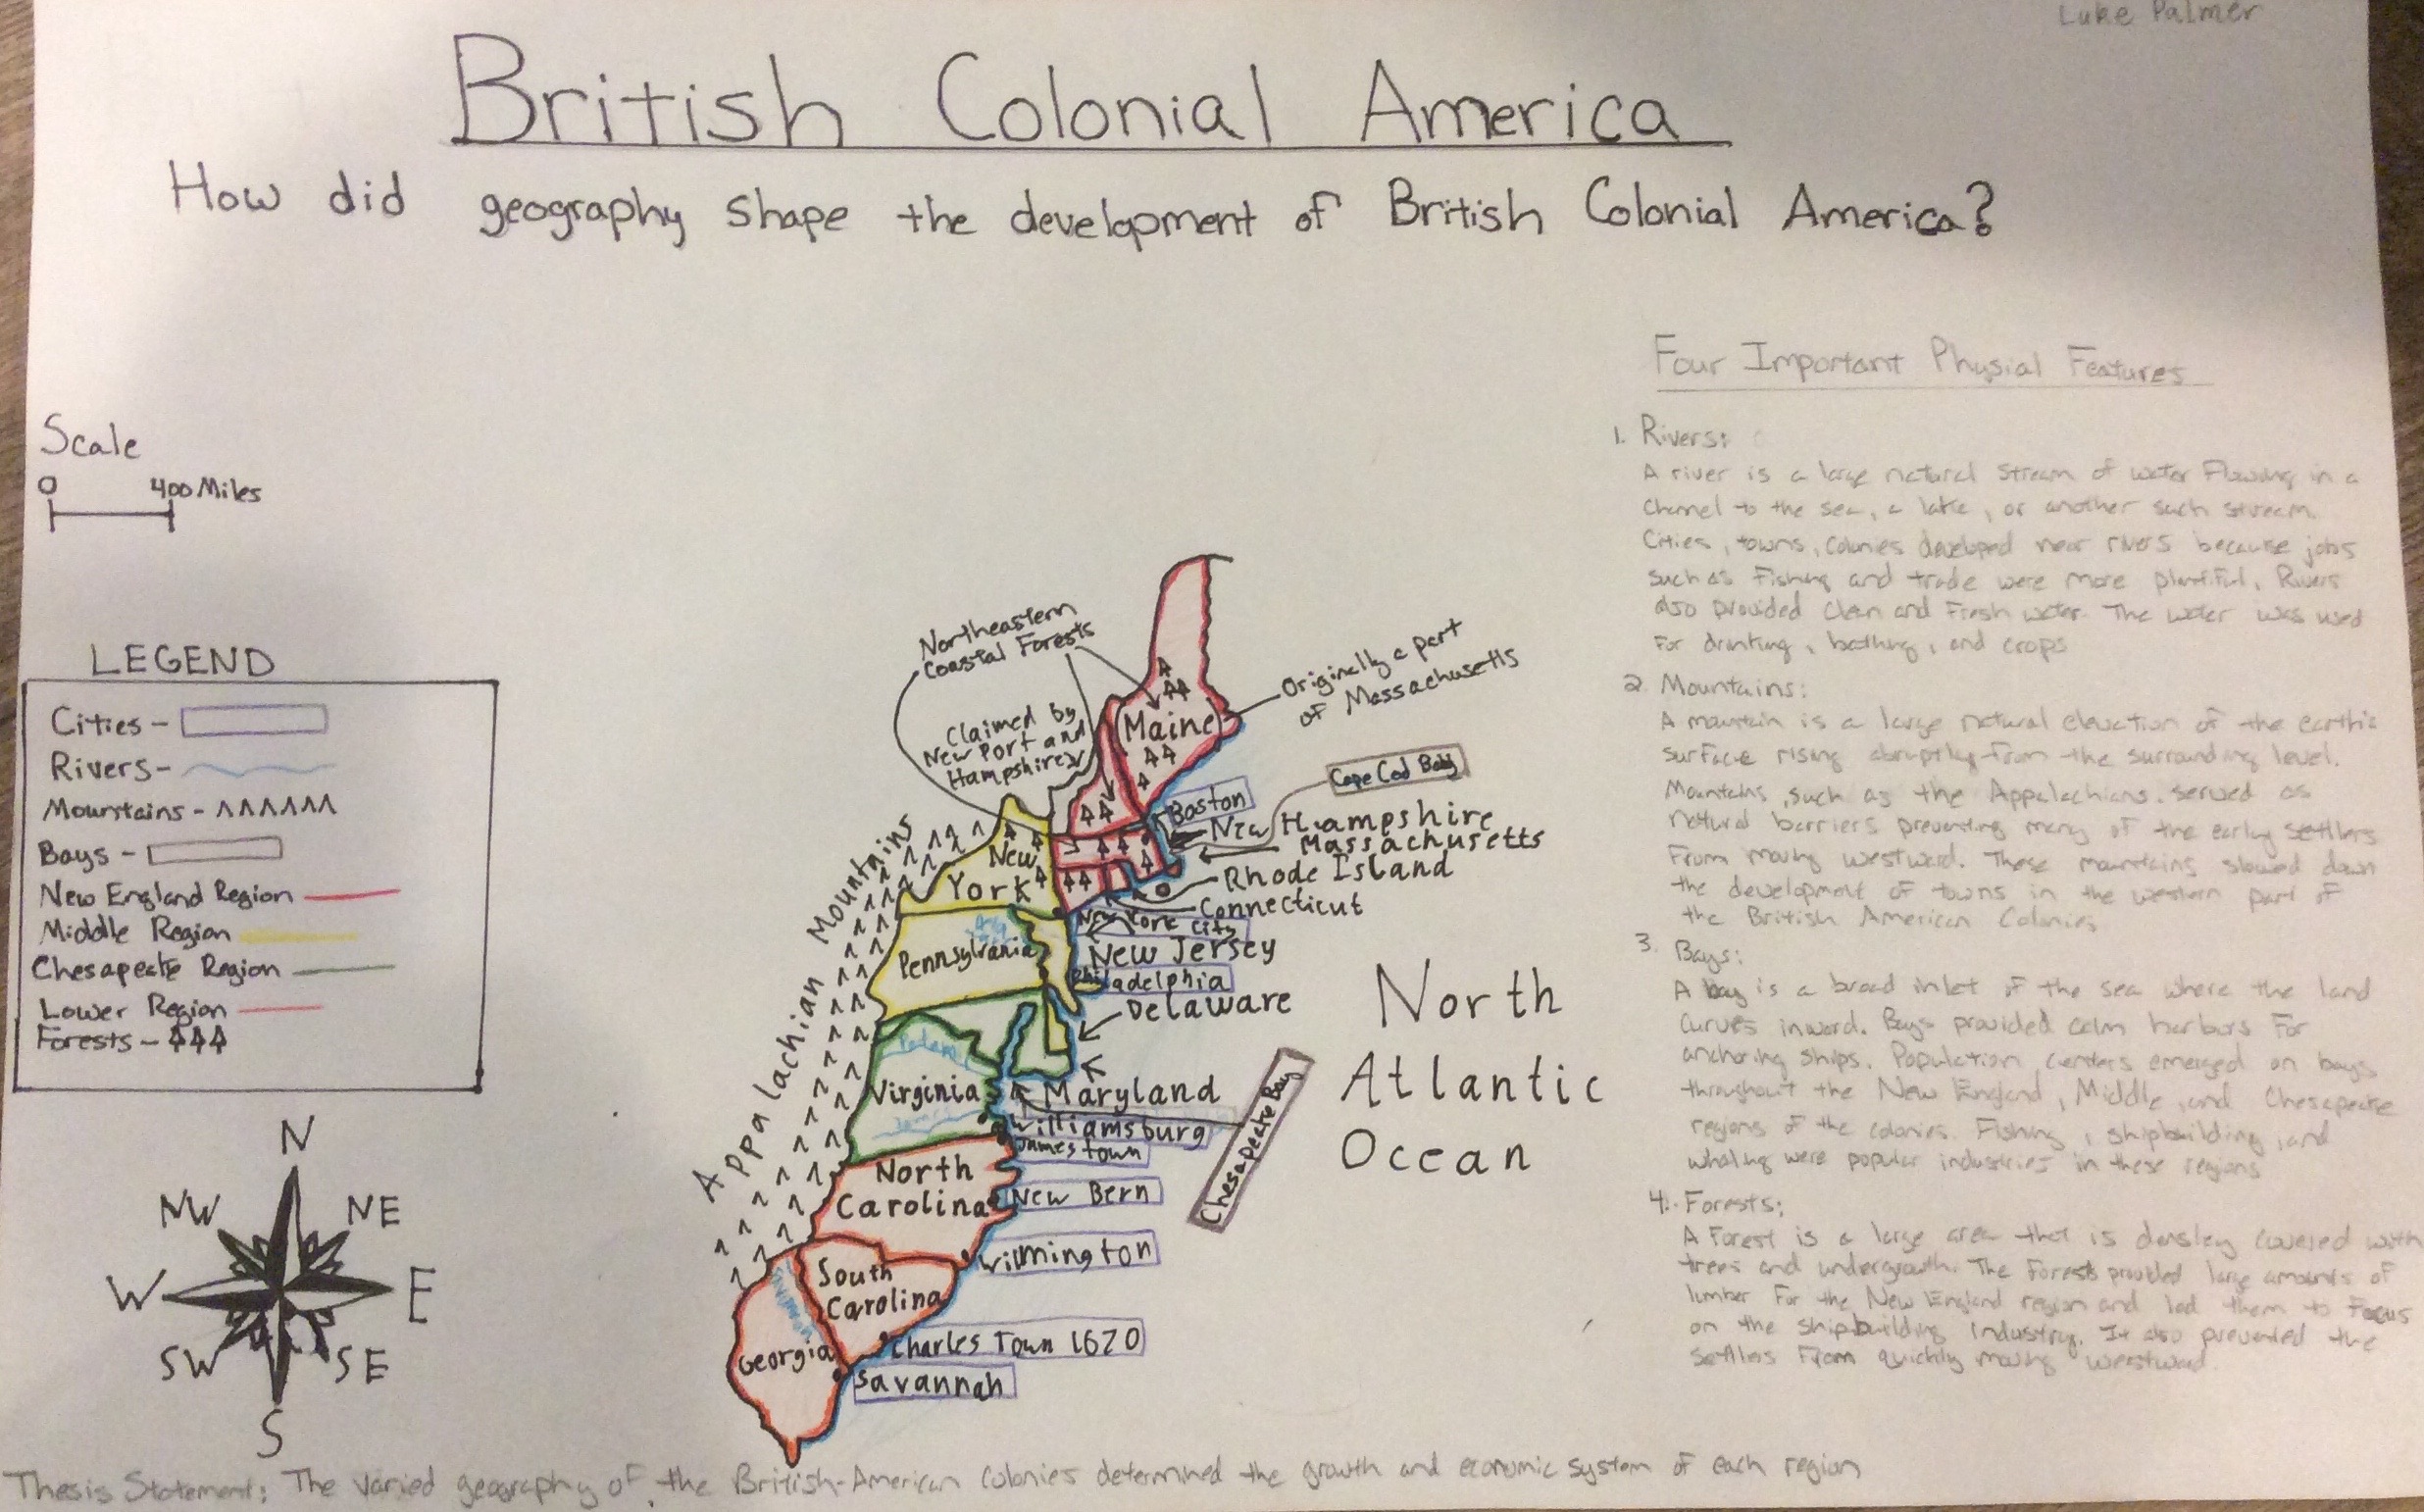 Luke Palmer
British Colonial America
How did geography shape the development of British Colonial America?
Scale
0 400 Miles
LEGEND
Cities -
Rivers -
Mountains -
Bays -
New England Region
Middle Region
Chesapeake Region
Lower Region
Forests -
N
NW NE
W E
SW SE
S
Northeastern
Coastal Forests
Claimed by
New Port and
Hampshire
Originally a part
of Massachusetts
Maine
Cape Cod Bay
Boston
New Hampshire
Massachusetts
Rhode Island
Connecticut
New York City
New
York
New Jersey
Pennsylvania
Philadelphia
Delaware
Maryland
Virginia
Williamsburg
Jamestown
Chesapeake Bay
North
Carolina
New Bern
Wilmington
South
Carolina
Charles Town 1670
Georgia
Savannah
Appalachian Mountains
North
Atlantic
Ocean
Four Important Physial Features
1. Rivers:
A river is a large natural stream of water flowing in a
channel to the sea, a lake, or another such stream.
Cities, towns, colonies developed near rivers because jobs
such as fishing and trade were more plentiful. Rivers
also provided clean and fresh water. The water was used
for drinking, bathing, and crops
2. Mountains:
A mountain is a large natural elevation of the earth's
surface rising abruptly from the surrounding level.
Mountains, such as the Appalachians, served as
natural barriers preventing many of the early settlers
from moving westward. These mountains slowed down
the development of towns in the western part of
the British American Colonies
3. Bays:
A bay is a broad inlet of the sea where the land
curves inward. Bays provided calm harbors for
anchoring ships. Population centers emerged on bays
throughout the New England, Middle, and Chesapeake
regions of the colonies. Fishing, shipbuilding, and
whaling were popular industries in these regions
4. Forests:
A forest is a large area that is densley covered with
trees and undergrowth. The forests provided large amounts of
lumber for the New England region and led them to focus
on the shipbuilding industry. It also prevented the
settlers from quickly moving westward.
Thesis Statement: The varied geography of the British-American Colonies determined the growth and economic system of each region